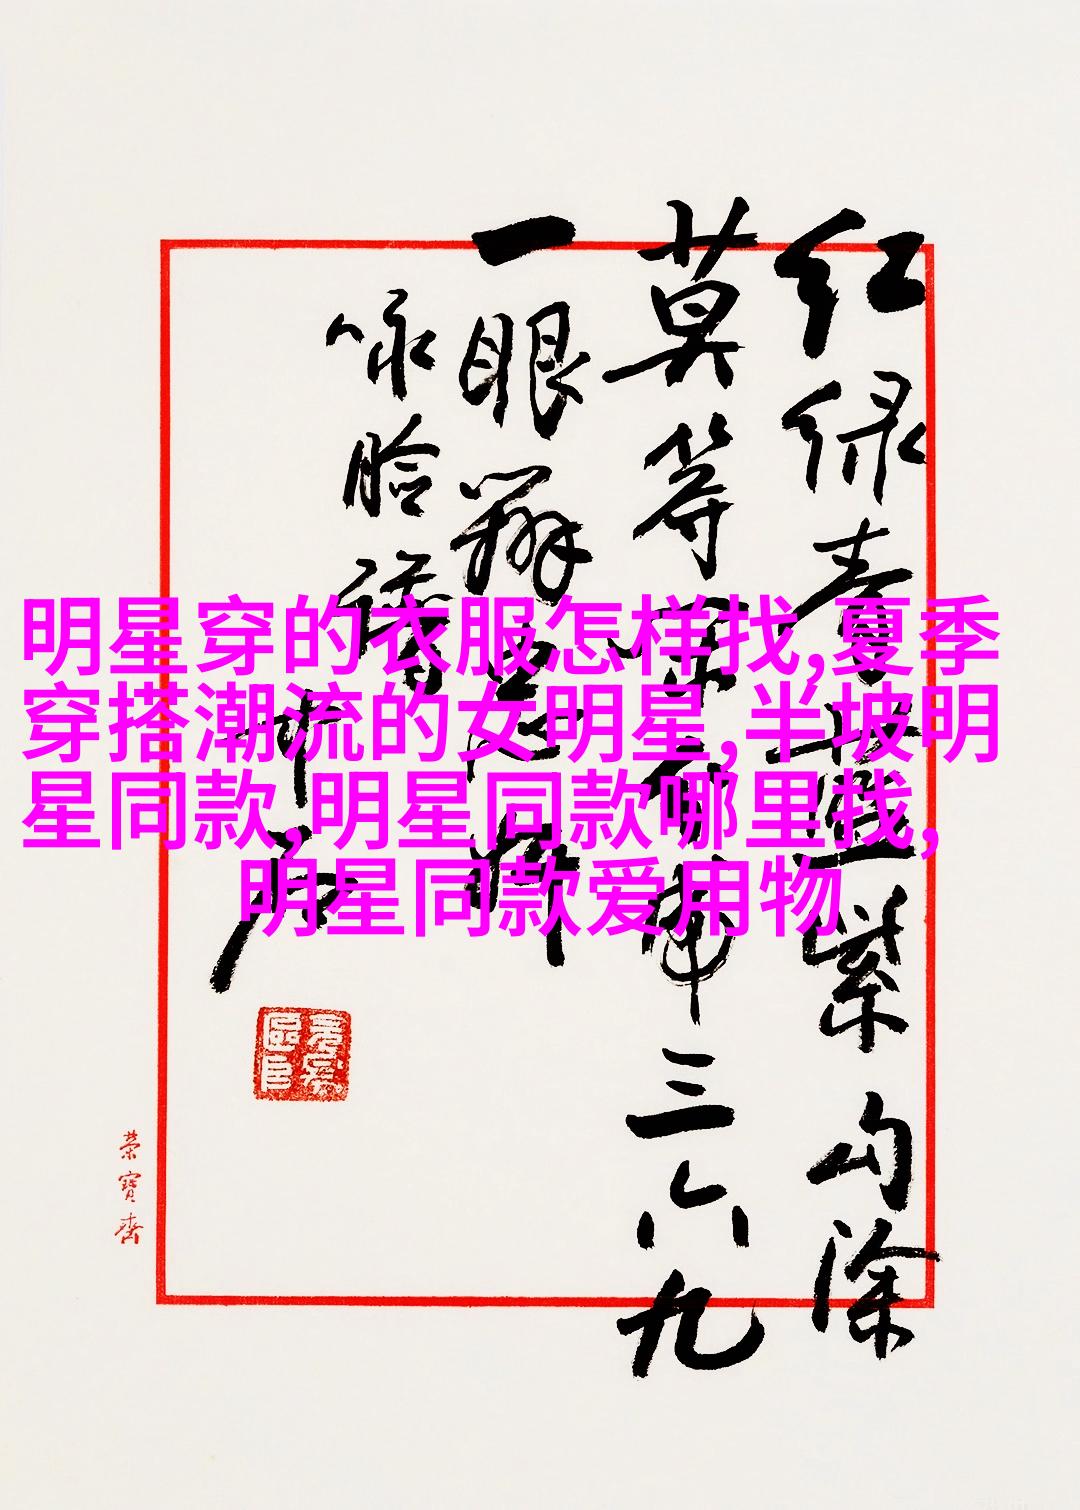 明星穿的衣服怎样找,夏季
穿搭潮流的女明星,半坡明
星同款,明星同款哪里找,
明星同款爱用物
红绿青蓝紫勾涂
莫等三六九
一眼辨
咏脸谱
荣寶齋